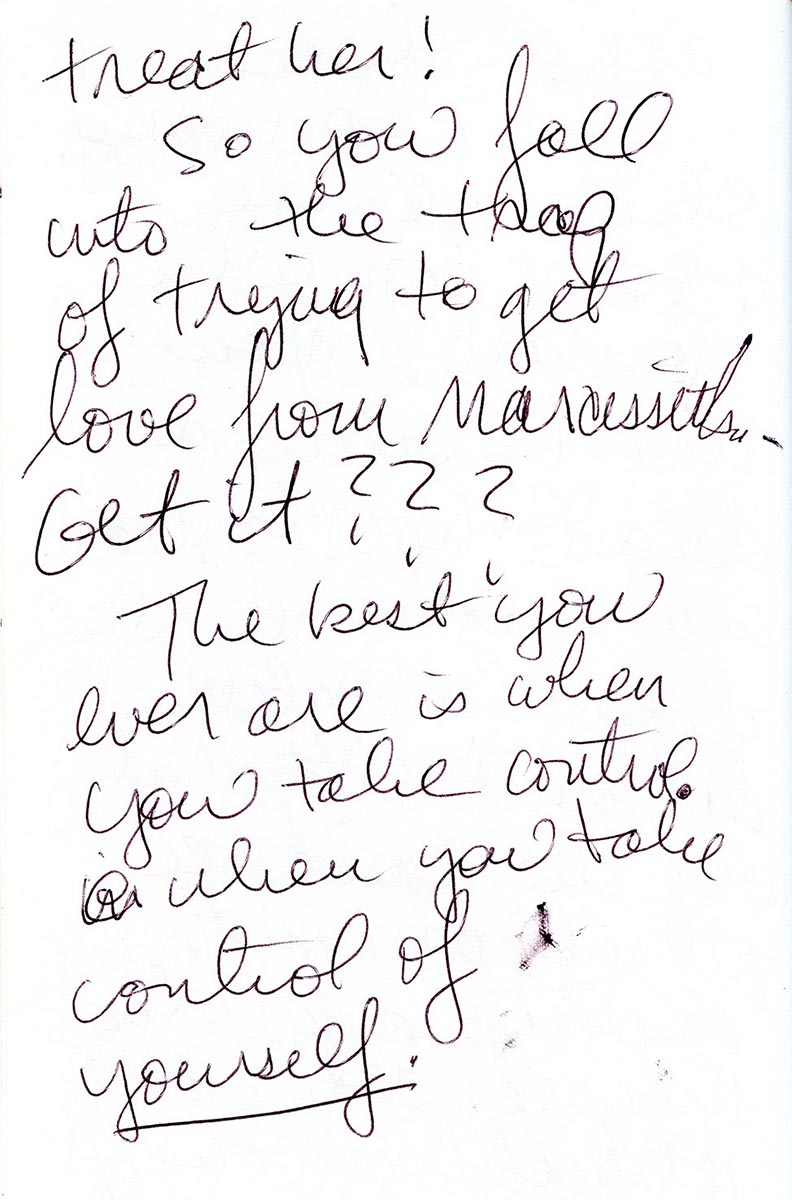 treat her!
So you fall
into the trap
of trying to get
love from Narcissists..
Get it???
The best you
ever are is when
you take control.
when you take
control of
yourself.